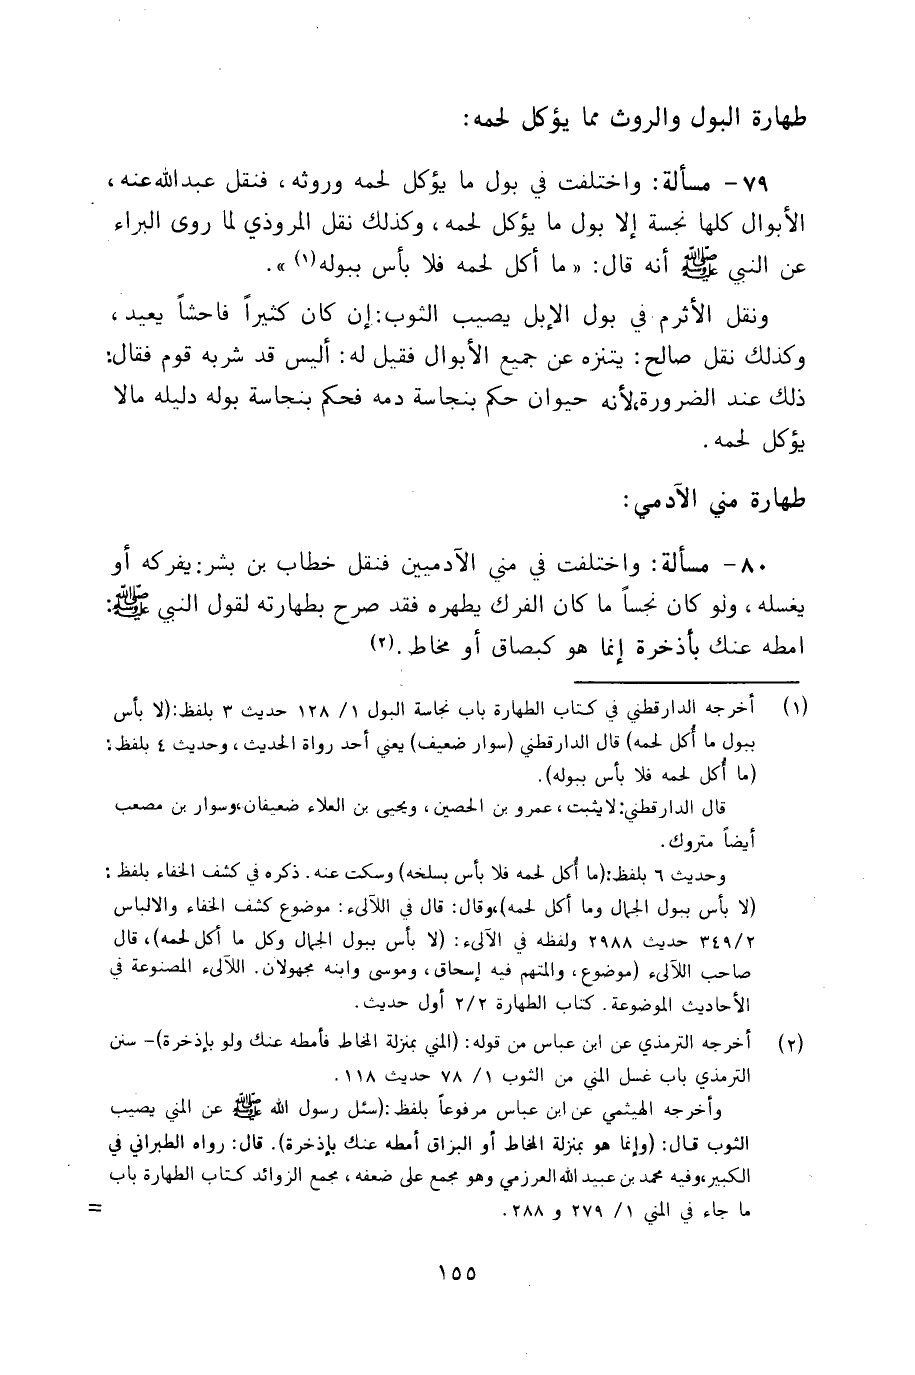 طهارة البول والروث مما يؤكل لحمه:
٧٩- مسألة: واختلفت في بول ما يؤكل لحمه وروثه، فنقل عبدالله عنه،
الأبوال كلها نجسة إلا بول ما يؤكل لحمه، وكذلك نقل المروذي لما روى البراء
عن النبي ﷺ أنه قال: « ما أكل لحمه فلا بأس ببوله(١) ».
ونقل الأثرم في بول الإبل يصيب الثوب: إن كان كثيراً فاحشاً يعيد،
وكذلك نقل صالح: يتنزه عن جميع الأبوال فقيل له: أليس قد شربه قوم فقال:
ذلك عند الضرورة، لأنه حيوان حكم بنجاسة دمه فحكم بنجاسة بوله دليله مالا
يؤكل لحمه.
طهارة مني الآدمي:
٨٠- مسألة: واختلفت في مني الآدميين فنقل خطاب بن بشر: يفركه أو
يغسله، ولو كان نجساً ما كان الفرك يطهره فقد صرح بطهارته لقول النبي ﷺ:
امطه عنك بأذخرة إنما هو كبصاق أو مخاط.(٢)
(١) أخرجه الدارقطني في كتاب الطهارة باب نجاسة البول ١/ ١٢٨ حديث ٣ بلفظ: (لا بأس
ببول ما أُكل لحمه) قال الدارقطني (سوار ضعيف) يعني أحد رواة الحديث، وحديث ٤ بلفظ:
(ما أُكل لحمه فلا بأس ببوله).
قال الدارقطني: لايثبت، عمرو بن الحصين، ويحيى بن العلاء ضعيفان، وسوار بن مصعب
أيضاً متروك.
وحديث ٦ بلفظ: (ما أُكل لحمه فلا بأس بسلخه) وسكت عنه. ذكره في كشف الخفاء بلفظ:
(لا بأس ببول الجمال وما أكل لحمه)، وقال: قال في اللآلىء: موضوع كشف الخفاء والالباس
٣٤٩/٢ حديث ٢٩٨٨ ولفظه في الآلىء: (لا بأس ببول الجمال وكل ما أكل لحمه)، قال
صاحب اللآلىء (موضوع، والمتهم فيه إسحاق، وموسى وابنه مجهولان. اللآلىء المصنوعة في
الأحاديث الموضوعة. كتاب الطهارة ٢/٢ أول حديث.
(٢) أخرجه الترمذي عن ابن عباس من قوله: (المني بمنزلة المخاط فأمطه عنك ولو بإذخرة)- سنن
الترمذي باب غسل المني من الثوب ١/ ٧٨ حديث ١١٨.
وأخرجه الهيثمي عن ابن عباس مرفوعاً بلفظ: (سئل رسول الله ﷺ عن المني يصيب
الثوب قال: (وإنما هو بمنزلة المخاط أو البزاق أمطه عنك بإذخرة). قال: رواه الطبراني في
الكبير، وفيه محمد بن عبيد الله العرزمي وهو مجمع على ضعفه، مجمع الزوائد كتاب الطهارة باب
ما جاء في المني ١/ ٢٧٩ و ٢٨٨.
=
١٥٥